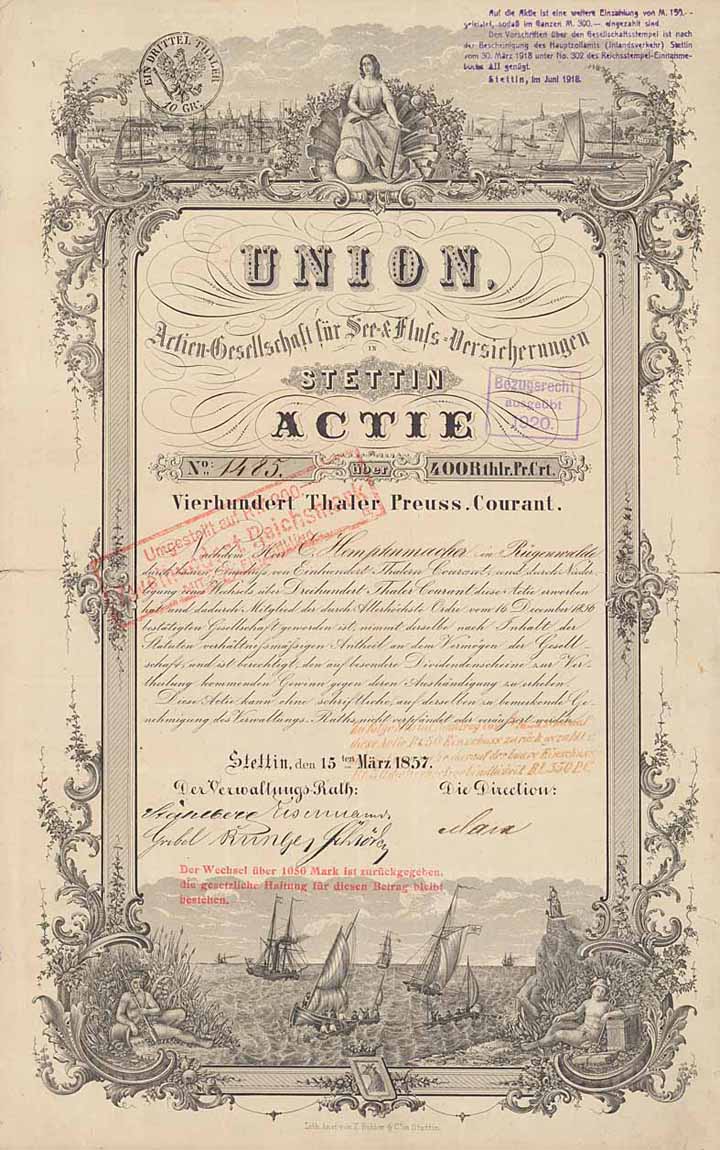 Auf die Aktie ist eine weitere Einzahlung von M. 150.--
geleistet, sodaß im Ganzen M. 300.— eingezahlt sind.
Den Vorschriften über den Gesellschaftsstempel ist nach
der Bescheinigung des Hauptzollamts (Inlandsverkehr) Stettin
vom 30. März 1918 unter No. 302 des Reichsstempel-Einnahme-
buchs AII genügt.
Stettin, im Juni 1918.
EIN DRITTEL THALER
10 GR.
UNION,
Actien-Gesellschaft für See-& Fluſs-Versicherungen
IN
STETTIN
Bezugsrecht
ausgeübt
1920.
ACTIE
No: 1485. über 400 Rthlr. Pr. Crt.
Vierhundert Thaler Preuss. Courant.
Umgestellt auf
Reichsmark
Nachdem Herr C. Hemptenmacher in Rügenwalde
durch baaren Einschuß von Einhundert Thalern Courant, und durch Nieder-
legung eines Wechsels über Dreihundert Thaler Courant diese Actie erworben
hat und dadurch Mitglied der durch Allerhöchste Ordre vom 16 December 1856
bestätigten Gesellschaft geworden ist, nimmt derselbe nach Inhalt der
Statuten verhältnißmäßigen Antheil an dem Vermögen der Gesell-
schaft, und ist berechtigt, den auf besondere Dividendenscheine zur Ver-
theilung kommenden Gewinn gegen deren Aushändigung zu erheben.
Diese Actie kann ohne schriftliche, auf derselben zu bemerkende Ge-
nehmigung des Verwaltungs-Raths, nicht verpfändet oder veräußert werden.
diese Actie Rt 50 Einschuss zurückgezahlt
Stettin, den 15ten März 1857.
Der Verwaltungs-Rath: Die Direction:
Der Wechsel über 1050 Mark ist zurückgegeben,
die gesetzliche Haftung für diesen Betrag bleibt
bestehen.
Lith. Anst. von
Stettin.